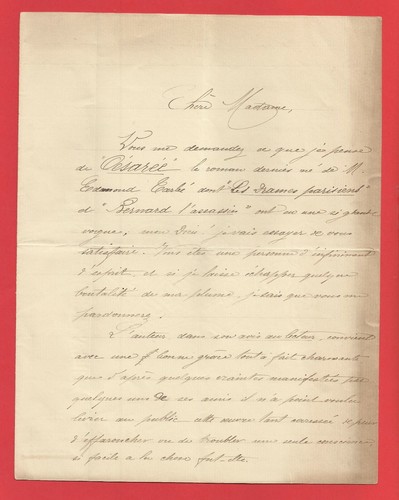 Chère Madame,
Vous me demandez ce que j'ai pensé
de "Césarée" le roman dernier né de M.
Edmond Tarbé dont "Les Drames parisiens"
et "Bernard l'assassin" ont eu une si grande
vogue; mon Dieu! je vais essayer de vous
satisfaire. Vous êtes une personne d'infiniment
d'esprit et si je laisse échapper quelque
brutalité de ma plume, je sais que vous me
pardonnerez.
L'auteur, dans son avis au lecteur, convient
avec une bonne grâce tout à fait charmante
que d'après quelques craintes manifestées par
quelques uns de ses amis il n'a point voulu
livrer au public cette œuvre tant caressée de peur
d'effaroucher ou de troubler une seule conscience,
si facile à la chose fut-elle